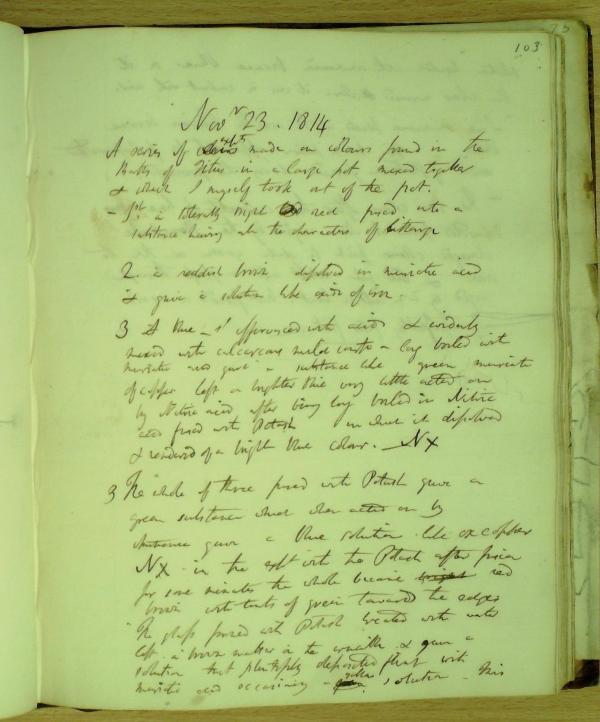 103
Novr 23. 1814
A series of expts made on colours found in the
Baths of Titus in a large pot mixed together
& which I myself took out of the pot.
– 1st a tolerably bright red fused into a
substance having all the characters of litharge
2. a reddish brown dissolved in muriatic acid
& gave a solution like oxide of iron.
3 A blue – 1st effervesced with acids & evidently
mixed with calcareous matter long boiled with
muriatic acid gave a substance like green muriate
of copper left a brighter blue very little acted on
by Nitric acid after being long boiled in Nitric
acid fused with Potash in what it dissolved
& rendered of a bright blue colour. – Nx
3 The whole of three fused with Potash gave a
green substance which when acted on by
gave a blue solution like ox copper
Nx in the expt with the Potash after fusion
for some minutes the whole became bright red
brown with tints of green towards the edges
The glass fused with Potash treated with water
left a brown matter in the crucible & gave a
solution that deposited with
muriatic acid occasioning a solution – This